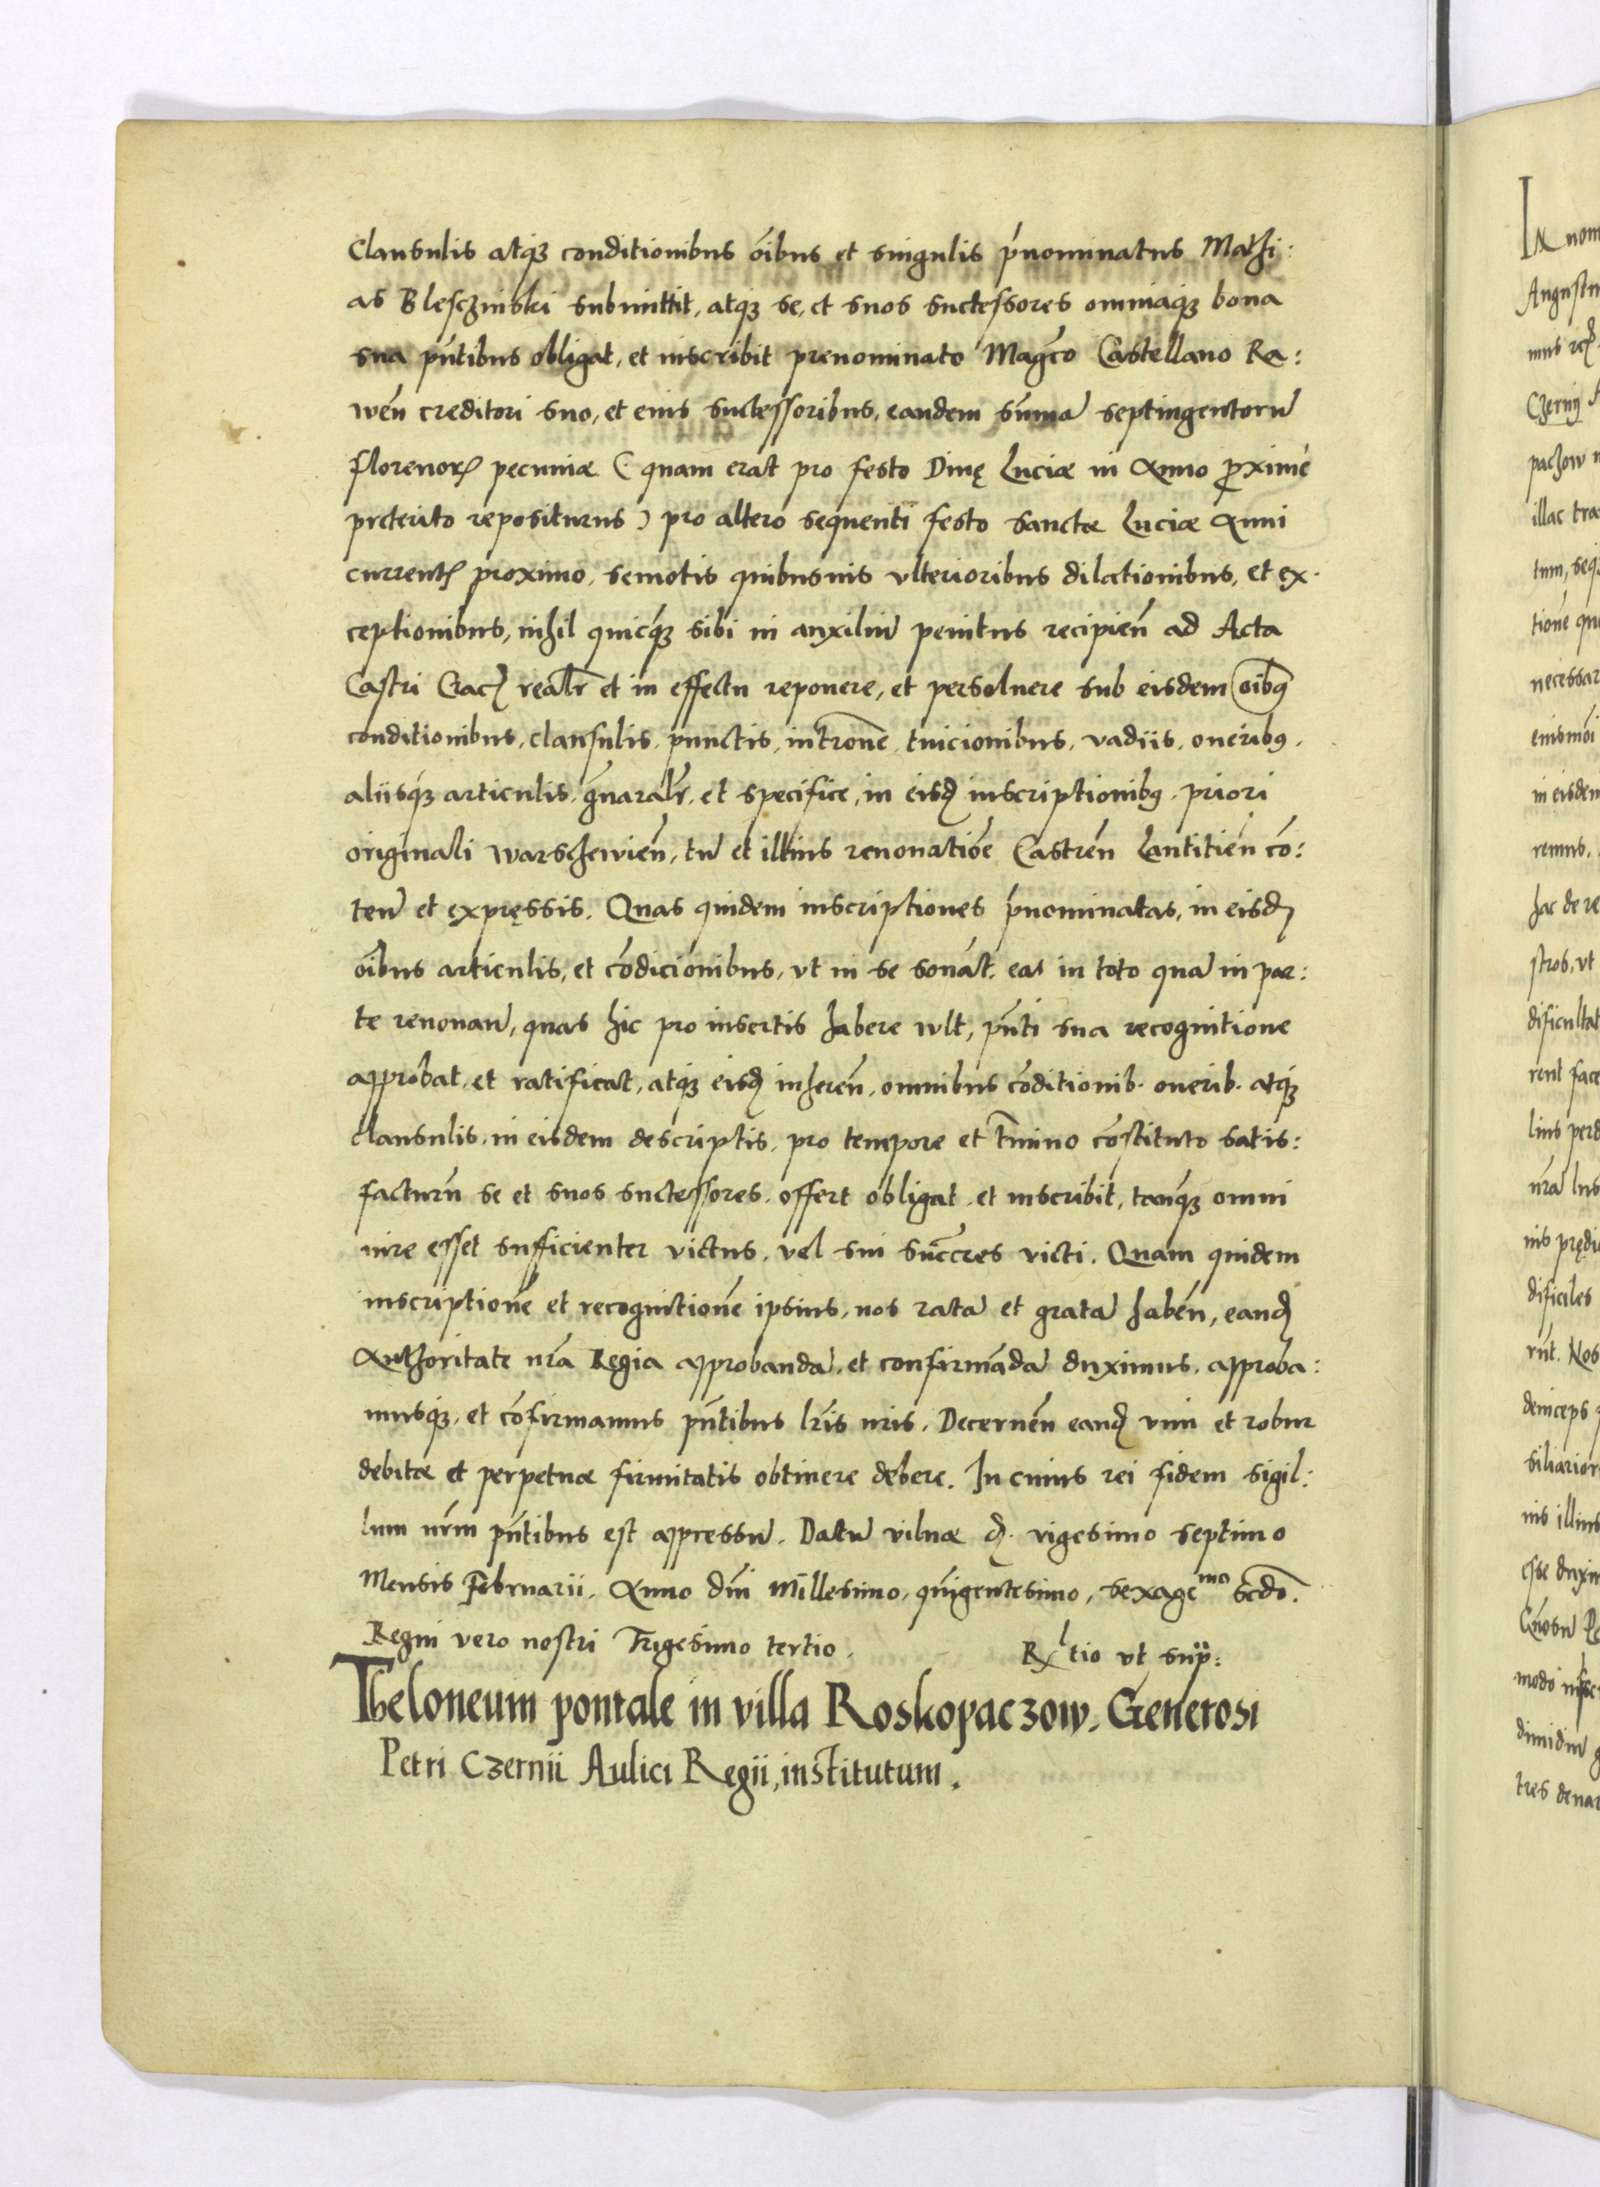 Clausulis atq₃ conditionibus o͞ibus et singulis p͛nominatus Mathi:
as Bleschinski submittit, atq₃ se, et suos suctessores omniaq₃ bona
sua pn̄tibus obligat, et inscribit prenominato Mag͞co Castellano Ra:
wen̄ creditori suo, et eius suctessoribus, eandem sum̄ā septingentorū
florenorꝝ pecuniæ (quam erat pro festo Diuę Luciæ in Anno ꝓximè
preterito repositurus) pro altero sequenti festo sanctæ Luciæ Anni
currentꝭ proximo, semotis quibusuis vlterioribus dilationibus, et ex-
ceptionibus, nihil quicq₃ sibi in auxiliū penitus recipien̄ ad Acta
Castri Cracꝭ realr̄ et in effectu reponere, et persoluere sub eisdem oibꝰ
conditionibus, clausulis, punctis, intromne tuicionibus, vadiis, oneribꝰ,
aliisq₃ articulis, gn̄aralr̄, et specifice, in eisd inscriptionibꝰ, priori
originali warschewien̄, tū et illius renouatiōe Castren̄ Lantitien̄ cō:
ten̄ et expręssis. Quas quidem inscriptiones p͛nominatas, in eisd
o͞ibus articulis, et cōdicionibus, vt in se sonāt, eas in toto quā in par:
te renouan̄, quas hic pro insertis habere wlt, pn̄ti sua recognitione
approbat, et ratificat, atq₃ eisd inheren̄, omnibus cōditionib. onerib. atq₃
clausulis, in eisdem descriptis, pro tempore et t͞mino cōstituto satis:
facturū se et suos suctessores, offert obligat, et inscribit, tanq₃ omni
iure esset sufficienter victus, vel sui succ̄res victi. Quam quidem
inscriptionē et recognitionē ipsius, nos ratā et gratā haben̄, eand
Authoritate nr̄a Regia approbandā, et confirmandā duximus, approba:
musq₃, et cōfirmamus pn̄tibus lr̄is nris. Decernen̄ eand vim et robur
debitæ et perpetuæ firmitatis obtinere debere. In cuius rei fidem sigil:
lum nr̄m pn̄tibus est appressū. Datū vilnæ d. vigesimo septimo
Mensis Februarii. Anno dn̄i Millesimo, quīgentesimo, sexageᵐᵒ scdō.
Regni vero nostri Trigesimo tertio. Rl̄tio vt sup̄:
Theloneum pontale in villa Roskopaczow. Generosi
Petri Czernii Aulici Regii, institutum.